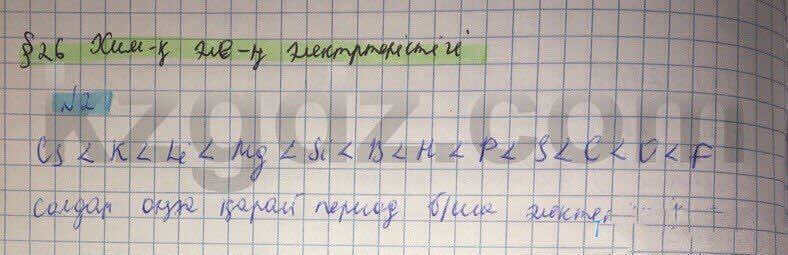 §26 Хим-қ эле-ң электртерістігі
№2
Cs < K < Li < Mg < Si < B < H < P < S < C < O < F
солдан оңға қарай период б/ша электр
kzgdz.com